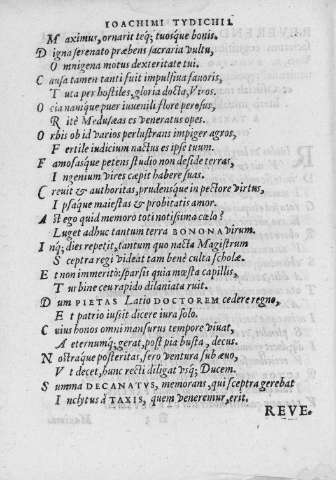 IOACHIMI TYDICHII
Maximus, ornarit teq́; tuosque bonis.
Digna serenato præbens sacraria vultu,
Omnigena motus dexteritate tui.
Causa tamen tanti fuit impulsiua fauoris,
Tuta per hostiles, gloria docta, Viros.
Ocia namque puer iuuenili flore perosus,
Ritè Medusæas es veneratus opes.
Orbis ob id varios perlustrans impiger agros,
Fertile iudicium nactus es ipse tuum.
Famosasque petens studio non deside terras,
Ingenium vires cœpit habere suas.
Creuit & authoritas, prudensque in pectore virtus,
Ipsaque maiestas & probitatis amor.
Ast ego quid memoro toti notissima cœlo?
Luget adhuc tantum terra BONONA virum.
Inq́; dies repetit, tantum quo nacta Magistrum
Sceptra regi videat tam benè culta scholæ.
Et non immeritò: sparsis quia mœsta capillis,
Turbine ceu rapido dilaniata ruit.
Dum PIETAS Latio DOCTOREM cedere regno,
Et patrio iussit dicere iura solo.
Cuius honos omni mansurus tempore viuat,
Aeternumq́; gerat, post pia busta, decus.
Nostraque posteritas, sero ventura sub æuo,
Vt decet, hunc recti diligat vsq́; Ducem.
Summa DECANATVS, memorans, qui sceptra gerebat
Inclytus à TAXIS, quem veneremur, erit.
REVE.